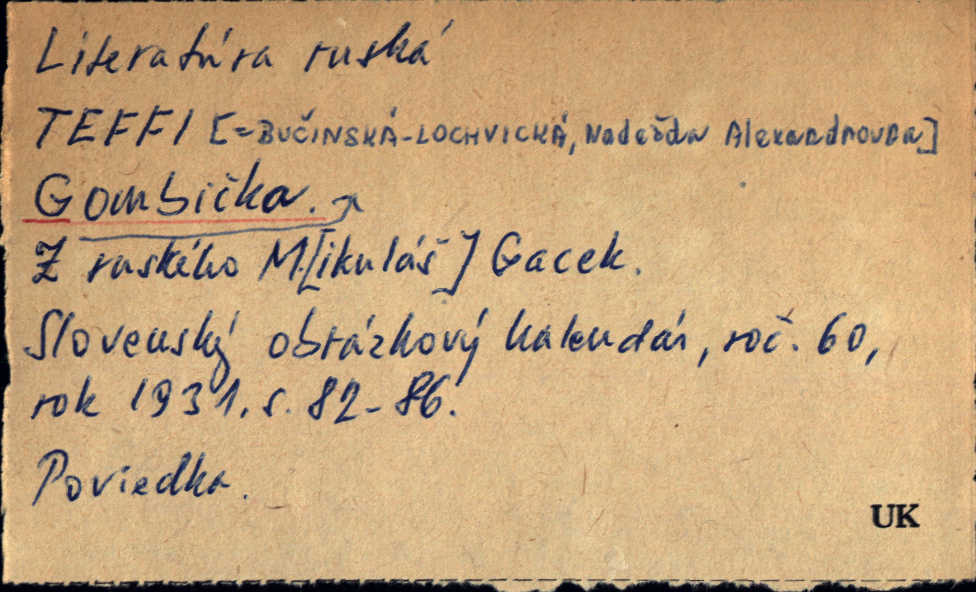 Literatúra ruská
TEFFI [=BUČINSKÁ-LOCHVICKÁ, Nadežda Alexandrovna]
Gombička.
Z ruského M.[ikuláš] Gacek.
Slovenský obrázkový kalendár, roč. 60,
rok 1931. s. 82-86.
Poviedka.
UK